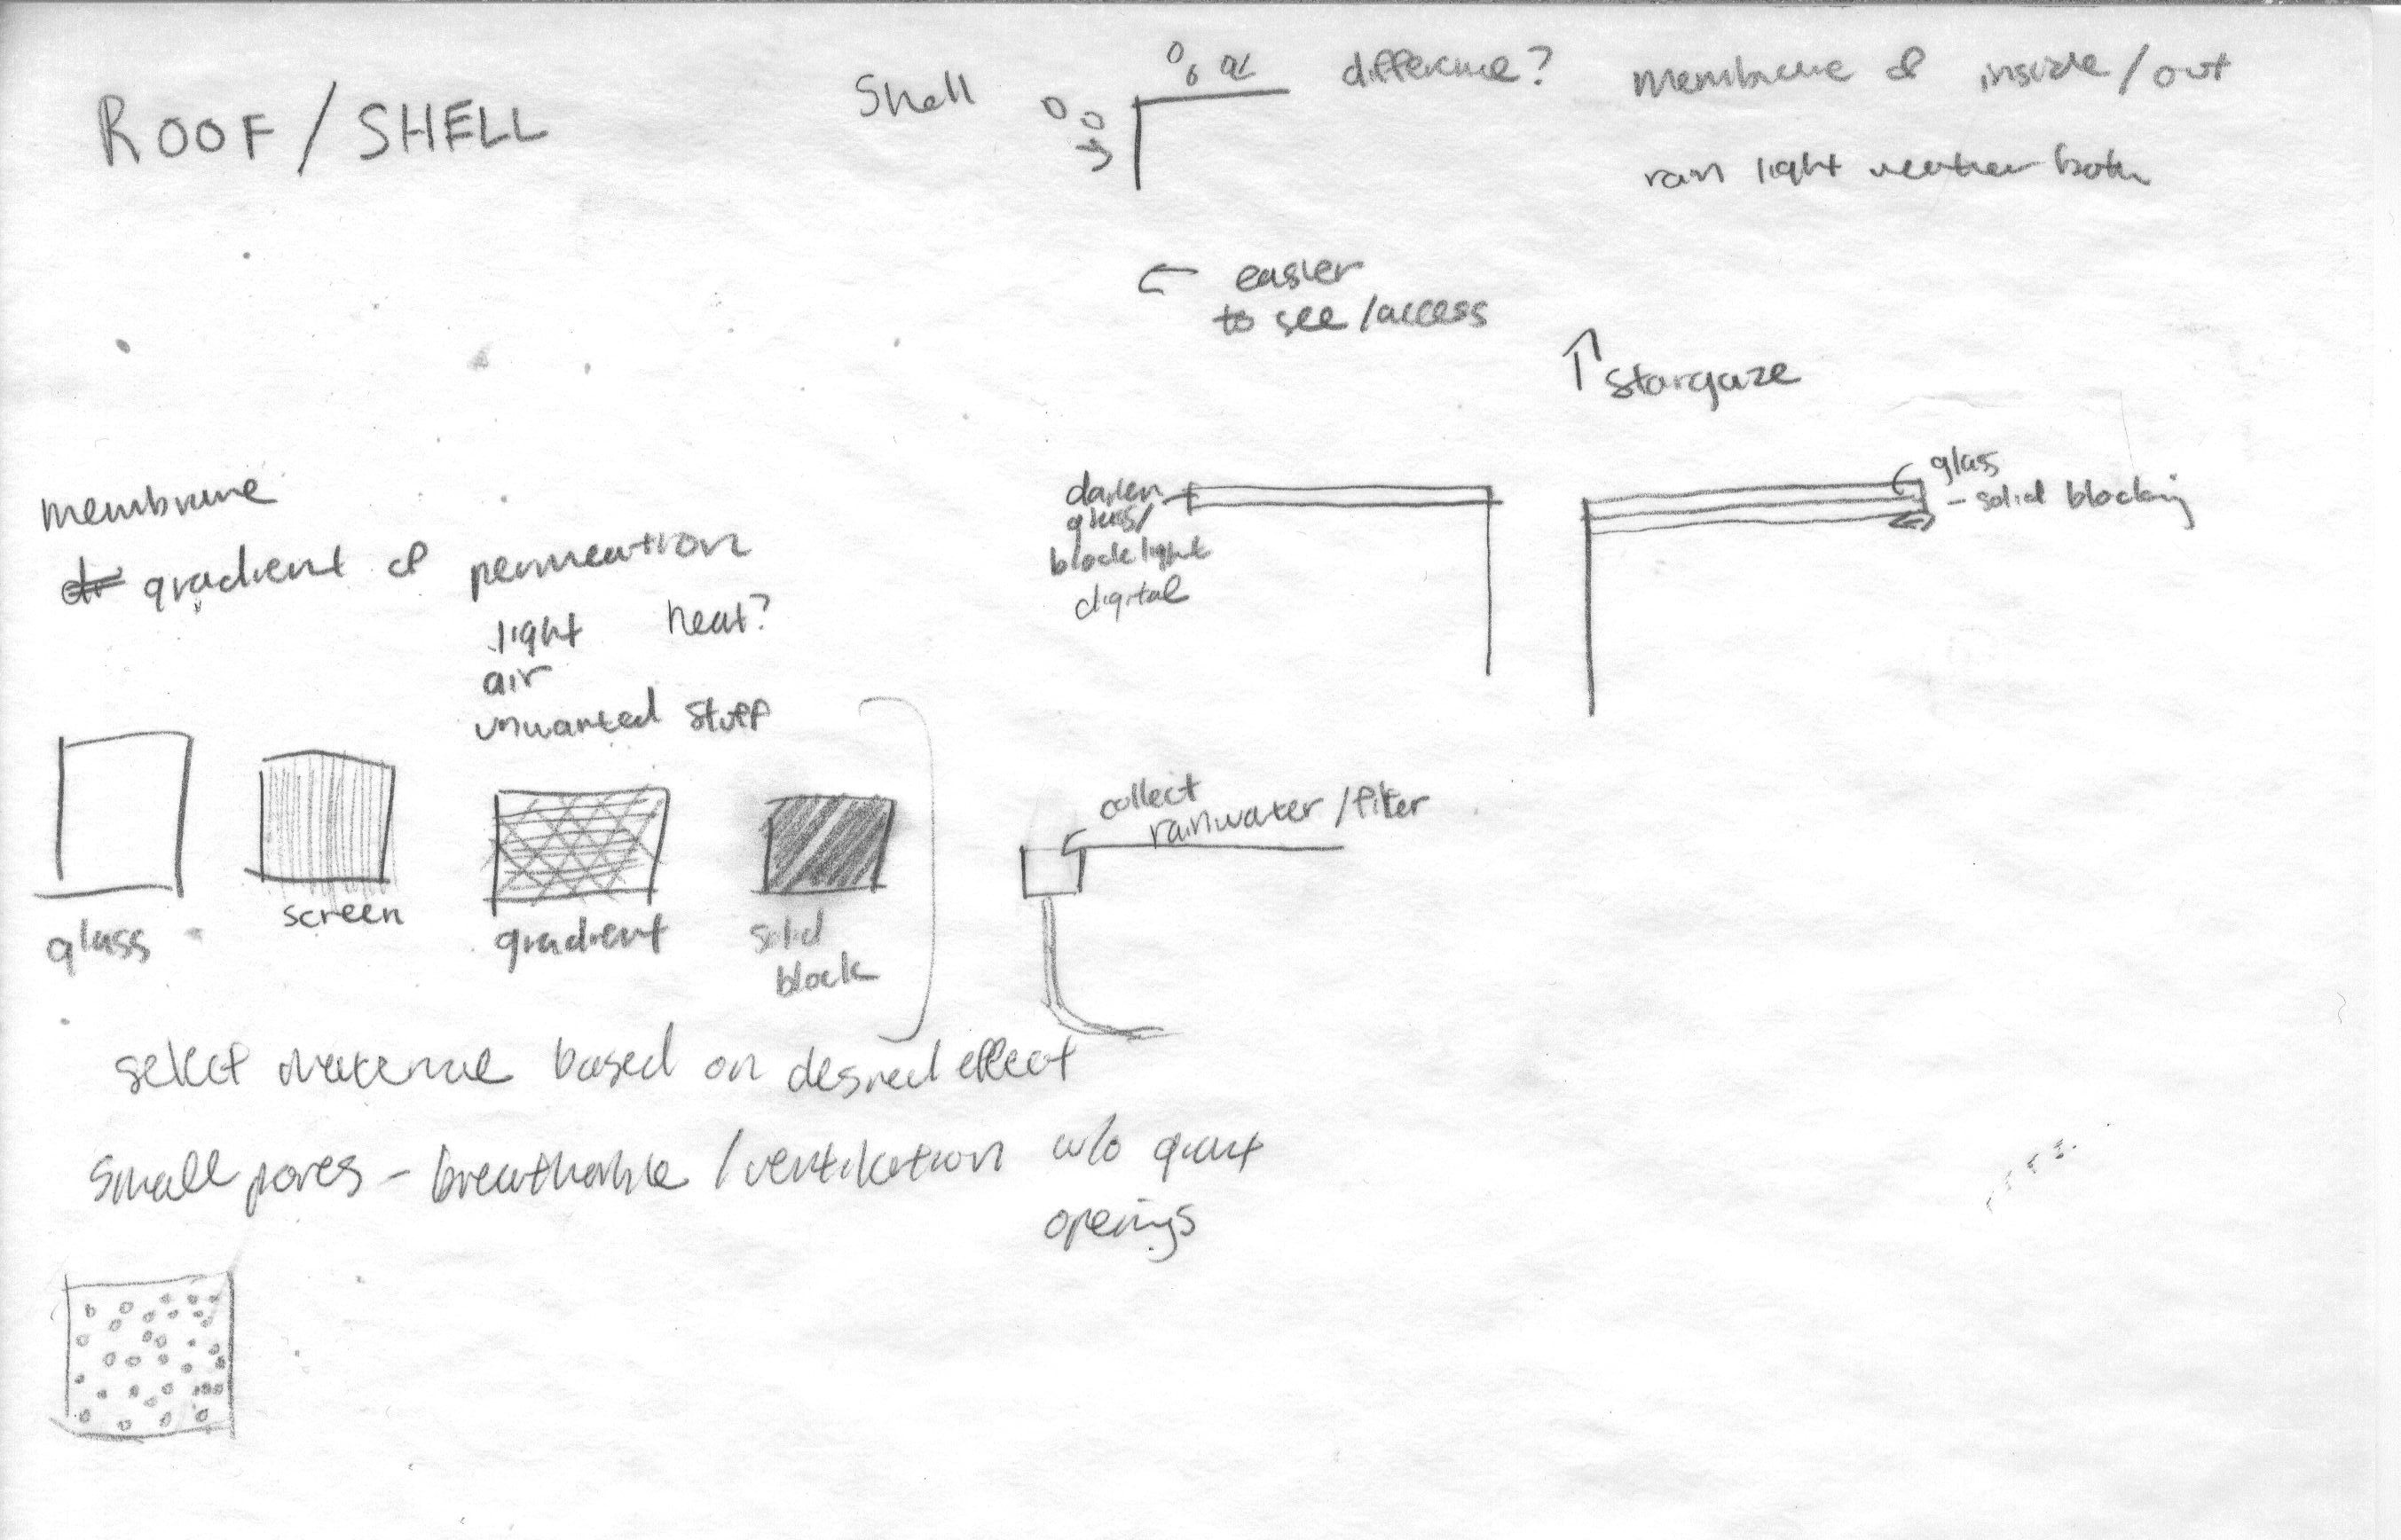 ROOF / SHELL
Shell
difference?
membrane of inside/out
rain light weather both
← easier
to see/access
↑ stargaze
membrane
gradient of permeation
light heat?
air
unwanted stuff
glass
screen
gradient
solid
block
select material based on desired effect
small pores - breathable/ventilation w/o giant
openings
darken
glass/
block light
digital
glass
- solid blocking
collect
rainwater/filter